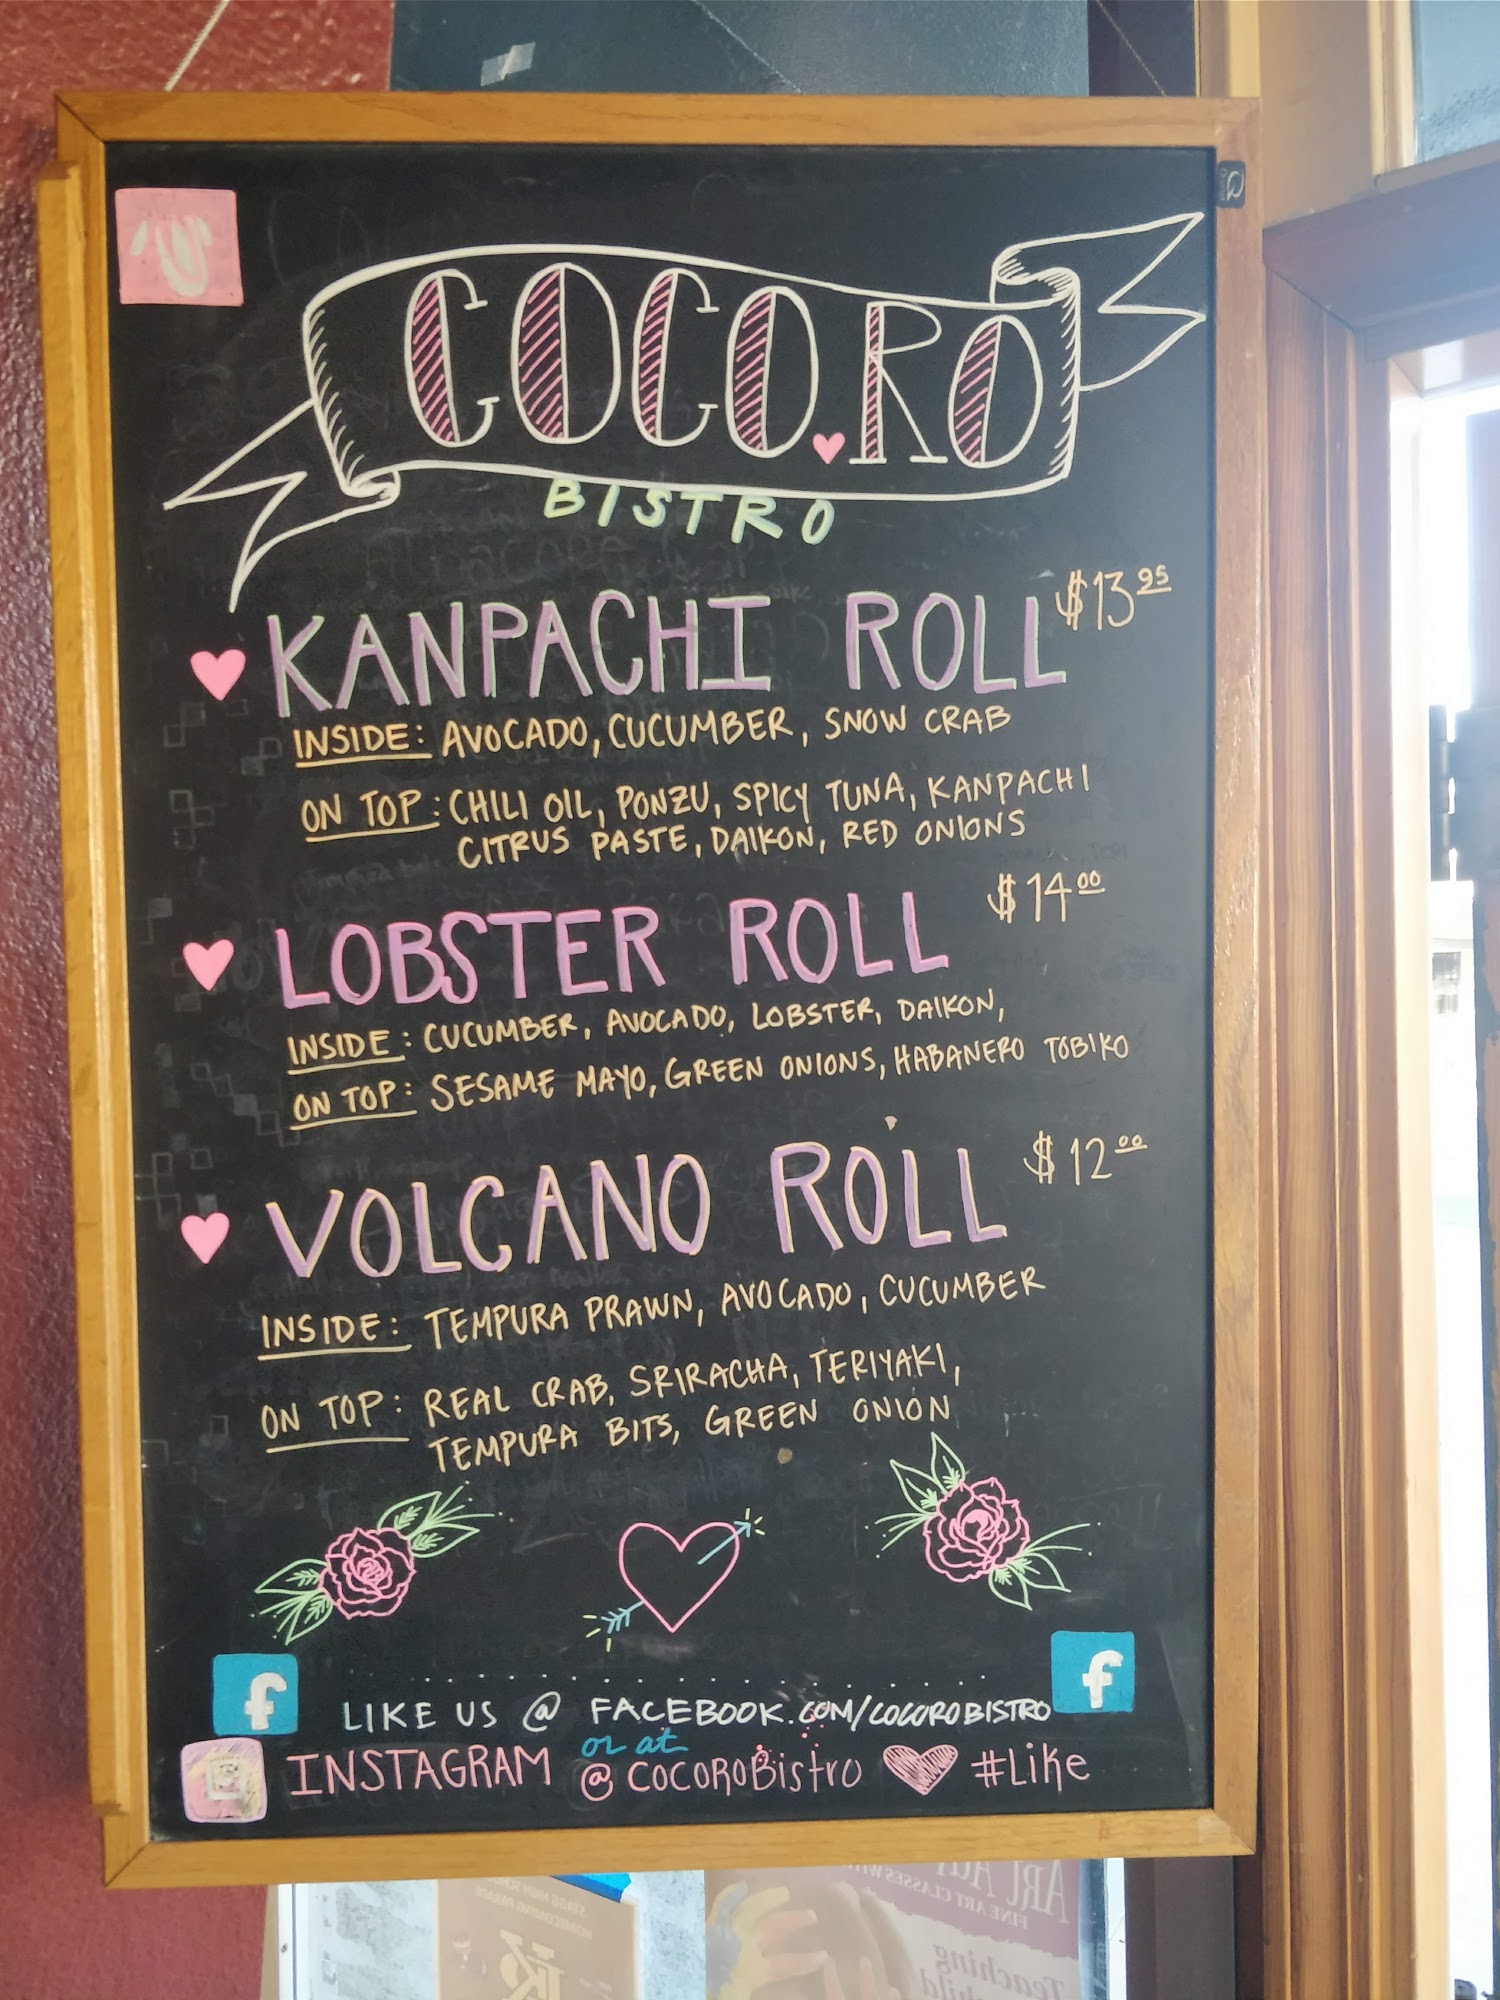 COCO.RO
BISTRO
KANPACHI ROLL $13.95
INSIDE: AVOCADO, CUCUMBER, SNOW CRAB
ON TOP: CHILI OIL, PONZU, SPICY TUNA, KANPACHI
CITRUS PASTE, DAIKON, RED ONIONS
LOBSTER ROLL $14.00
INSIDE: CUCUMBER, AVOCADO, LOBSTER, DAIKON,
ON TOP: SESAME MAYO, GREEN ONIONS, HABANERO TOBIKO
VOLCANO ROLL $12.00
INSIDE: TEMPURA PRAWN, AVOCADO, CUCUMBER
ON TOP: REAL CRAB, SRIRACHA, TERIYAKI,
TEMPURA BITS, GREEN ONION
f f
LIKE US @ FACEBOOK.COM/COCOROBISTRO
or at
INSTAGRAM @COCOROBistro #Like
STAGG HIGH SCHOOL
HOMECOMING PARADE
FINE ART CLASSES
Teaching